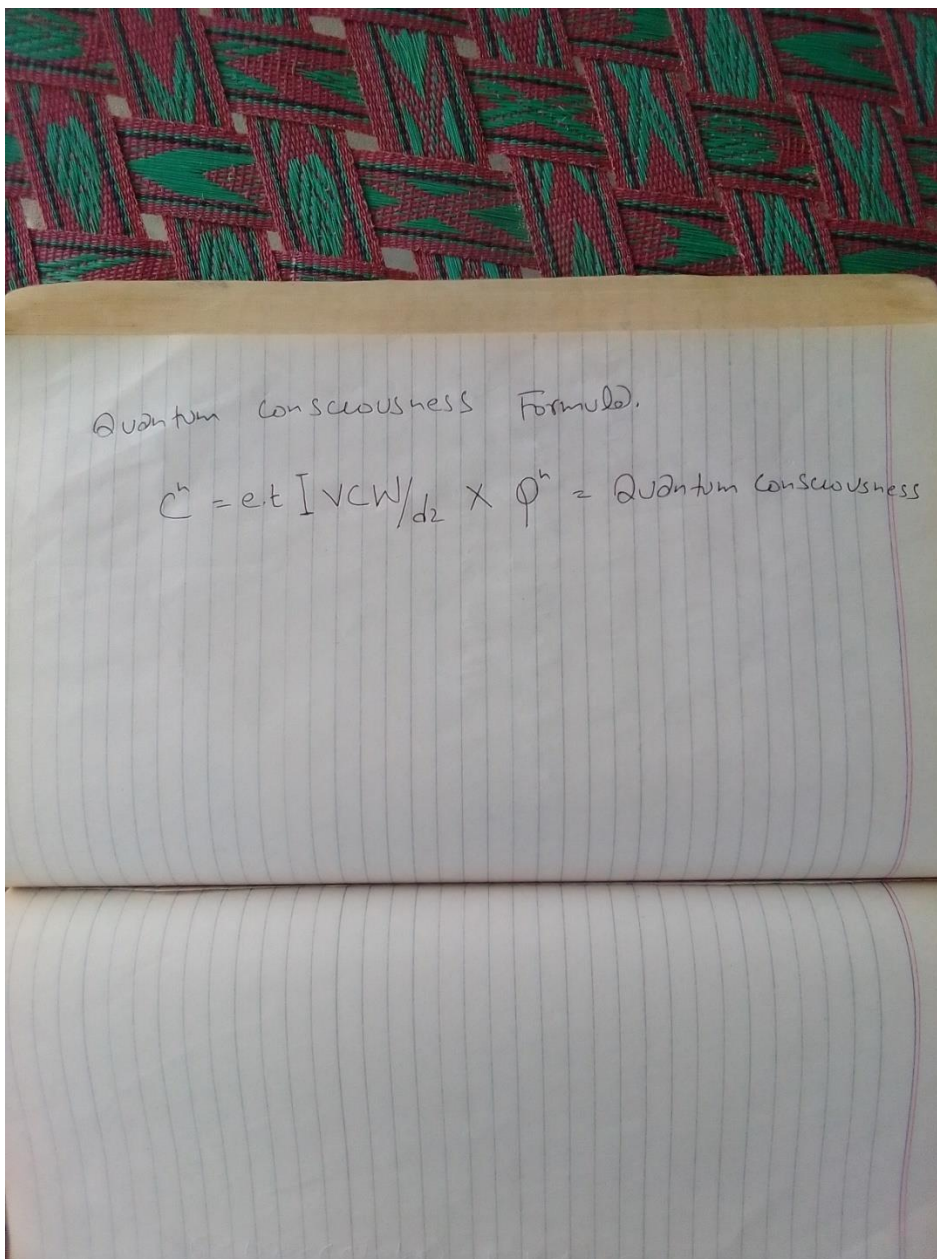 Quantum Consciousness Formula.
Cʰ = e.t I VCW/d2 X φʰ = Quantum Consciousness